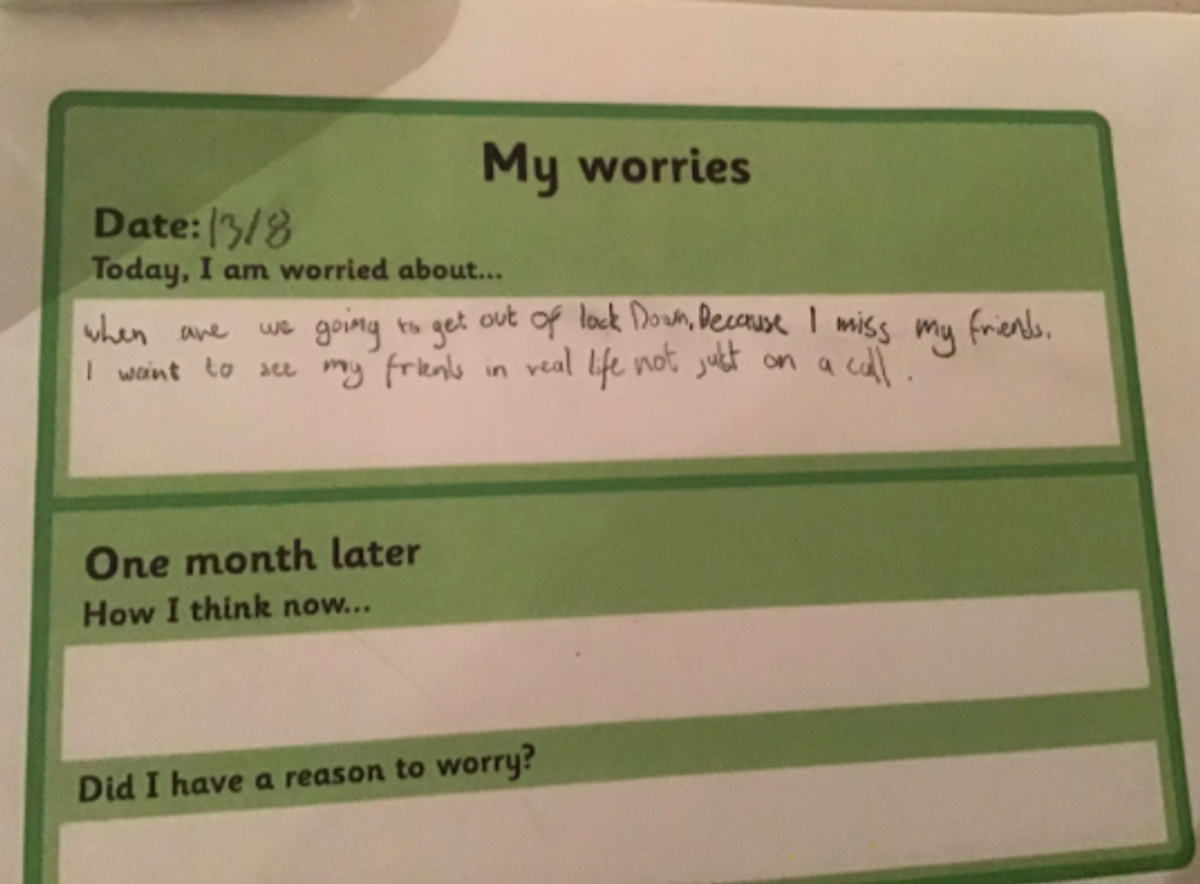 My worries
Date: 13/8
Today, I am worried about...
when are we going to get out of lock Down, Because I miss my friends.
I want to see my friends in real life not just on a call.
One month later
How I think now...
Did I have a reason to worry?